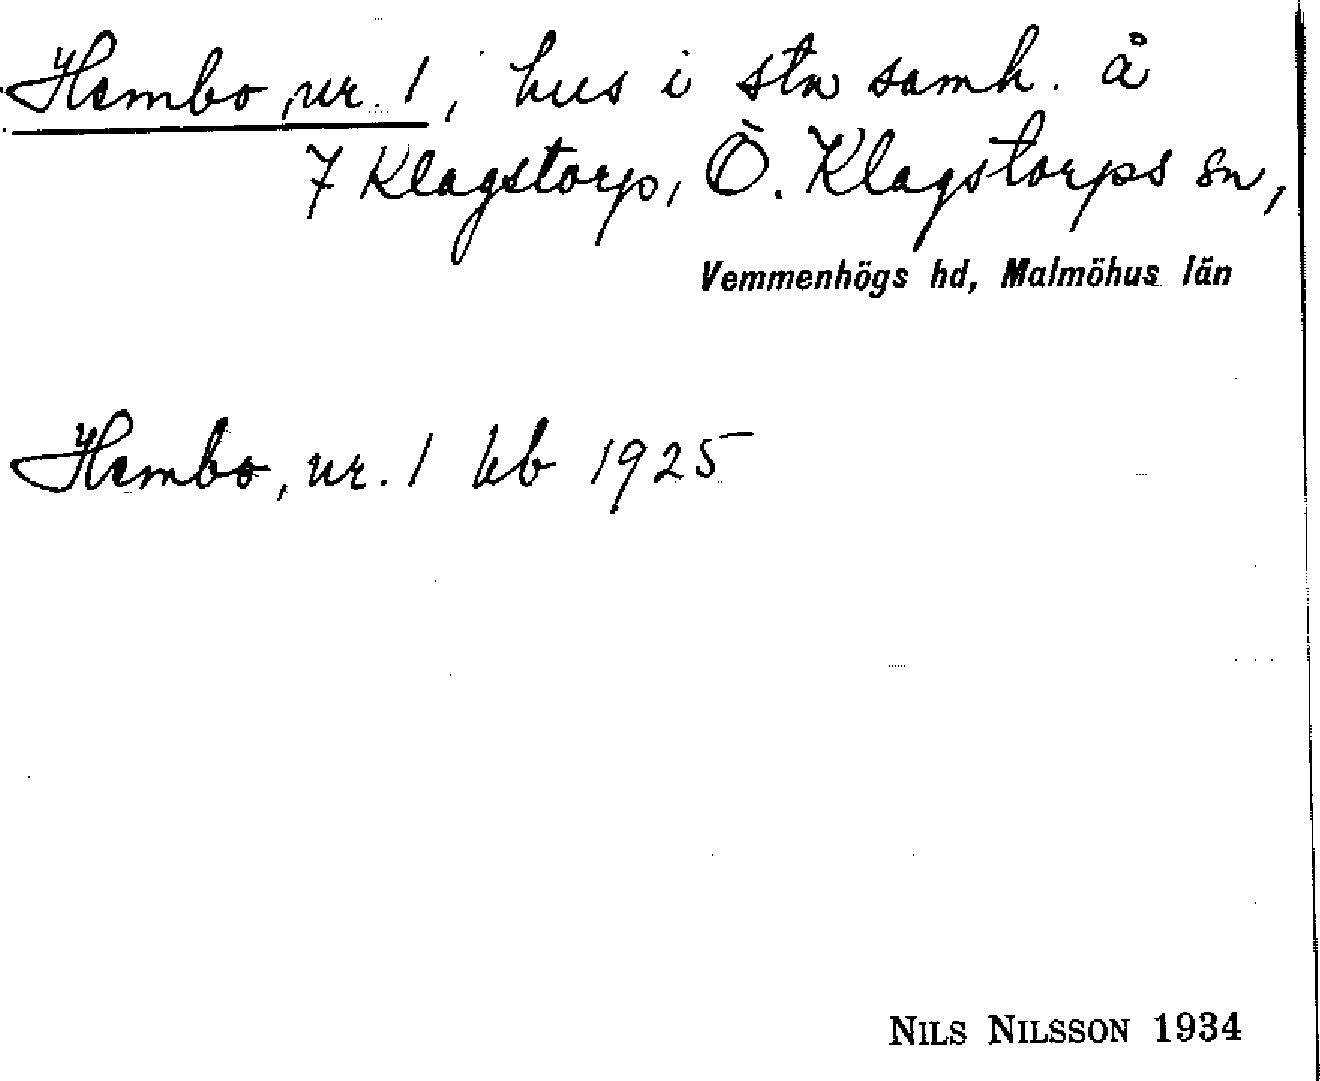 Hembo, nr. 1, hus i stn samh. å
7 Klagstorp, Ö. Klagstorps sn,
Vemmenhögs hd, Malmöhus län
Hembo, nr. 1 kb 1925
NILS NILSSON 1934